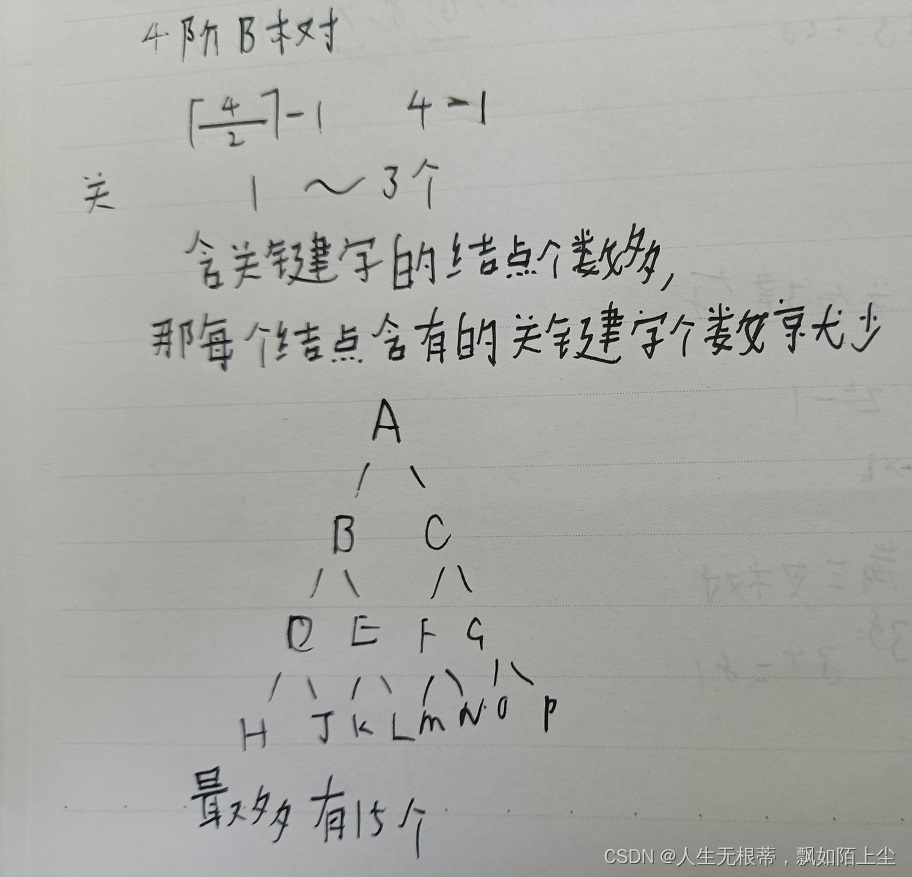 4阶B树
⌈4/2⌉-1 4-1
关 1 ~ 3个
含关键字的结点个数多,
那每个结点含有的关键字个数就少
A
B C
D E F G
H J K L M N O P
最多有15个
CSDN @人生无根蒂，飘如陌上尘